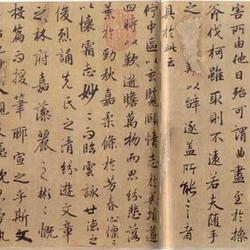 害所由他日殆可謂曲盡至於操
斧伐柯雖取則不遠若夫隨手
之 以辭逮蓋所能言者
具於此云
佇中區以玄覽頤情志於典墳遵
四時以歎逝瞻萬物而思紛悲落
葉於勁秋嘉柔條於芳春心懍懍
以懷霜志眇眇而臨雲詠世德之
俊烈誦先民之清芬遊文章
之林府嘉藻麗之彬彬慨
投篇而援筆聊宣之乎斯文